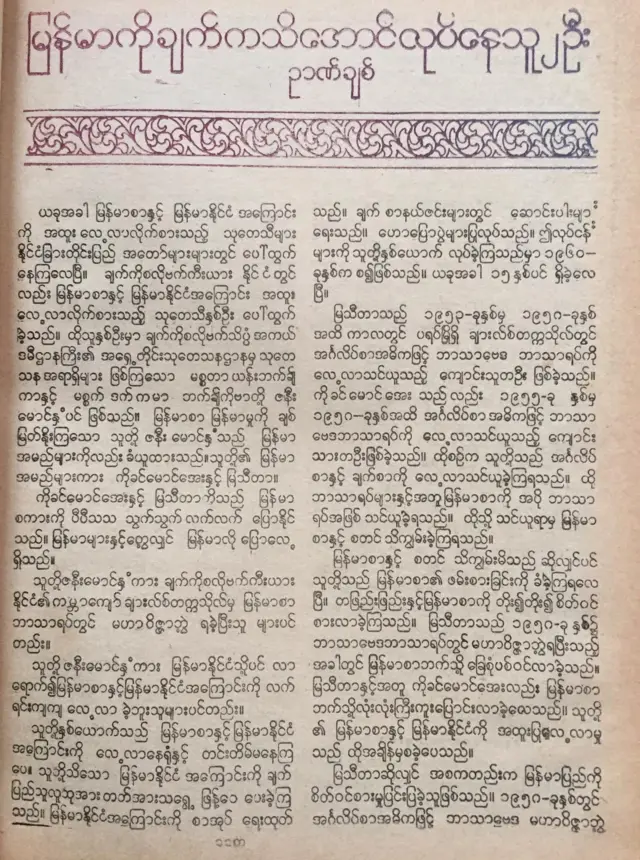 မြန်မာကိုချက်ကသိအောင်လုပ်နေသူ၂ဦး
ဉာဏ်ချစ်
ယခုအခါ မြန်မာစာနှင့် မြန်မာနိုင်ငံ အကြောင်း
ကို အထူး လေ့လာလိုက်စားသည့် သုတေသီများ
နိုင်ငံခြားတိုင်းပြည် အတော်များများတွင် ပေါ်ထွက်
နေကြလေပြီ။ ချက်ကိုစလိုဗက်ကီးယား နိုင်ငံတွင်
လည်း မြန်မာစာနှင့် မြန်မာနိုင်ငံအကြောင်း အထူး
လေ့လာလိုက်စားသည့် သုတေသီနှစ်ဦး ပေါ်ထွက်
ခဲ့သည်။ ထိုသူနှစ်ဦးမှာ ချက်ကိုစလိုဗက်သိပ္ပံ အကယ်
ဒမီဌာနကြီး၏ အရှေ့တိုင်းသုတေသနဌာနမှ သုတေ
သန အရာရှိများ ဖြစ်ကြသော မစ္စတာ ယန်းဘက်ချီ
ကာနှင့် မစ္စက် ဒက်ကမာ ဘက်ချီကိုဗာတို့ ဇနီး
မောင်နှံပင် ဖြစ်သည်။ မြန်မာစာ မြန်မာမှုကို ချစ်
မြတ်နိုးကြသော သူတို့ ဇနီး မောင်နှံသည် မြန်မာ
အမည်များကိုလည်း ခံယူထားသည်။သူတို့၏ မြန်မာ
အမည်များကား ကိုခင်မောင်အေးနှင့် မြသီတာ။
ကိုခင်မောင်အေးနှင့် မြသီတာ တို့သည် မြန်မာ
စကားကို ပီပီသသ သွက်သွက် လက်လက် ပြောနိုင်
သည်။ မြန်မာများနှင့်တွေ့လျှင် မြန်မာလို ပြောလေ့
ရှိသည်။
သူတို့ဇနီးမောင်နှံကား ချက်ကိုစလိုဗက်ကီးယား
နိုင်ငံ၏ ကမ္ဘာကျော် ချားလ်စ်တက္ကသိုလ်မှ မြန်မာစာ
ဘာသာရပ်တွင် မဟာဝိဇ္ဇာဘွဲ့ ရခဲ့ပြီးသူ များပင်
တည်း။
သူတို့ ဇနီးမောင်နှံကား မြန်မာနိုင်ငံသို့ပင် လာ
ရောက်၍မြန်မာစာနှင့်မြန်မာနိုင်ငံအကြောင်းကို လက်
ရင်းကျကျ လေ့လာ ခဲ့ဘူးသူများပင်တည်း။
သူတို့နှစ်ယောက်သည် မြန်မာစာနှင့်မြန်မာနိုင်ငံ
အကြောင်းကို လေ့လာနေရုံနှင့် တင်းတိမ်မနေကြ
ပေ။ သူတို့သိသော မြန်မာနိုင်ငံ အကြောင်းကို ချက်
ပြည်သူလူထုအား တတ်အားသရွေ့ ဖြန့်ဝေ ပေးခဲ့ကြ
သည်။ မြန်မာနိုင်ငံအကြောင်းကို စာအုပ် ရေးထုတ်
သည်။ ချက် စာနယ်ဇင်းများတွင် ဆောင်းပါးများ
ရေးသည်။ ဟောပြောပွဲများပြုလုပ်သည်။ ဤလုပ်ငန်း
များကို သူတို့နှစ်ယောက် လုပ်ခဲ့ကြသည်မှာ ၁၉၆၀-
ခုနှစ်က စ၍ဖြစ်သည်။ ယခုအခါ ၁၅ နှစ်ပင် ရှိခဲ့လေ
ပြီ။
မြသီတာသည် ၁၉၅၃-ခုနှစ်မှ ၁၉၅၈-ခုနှစ်
အထိ ကာလတွင် ပရပ်မြို့ရှိ ချားလ်စ်တက္ကသိုလ်တွင်
အင်္ဂလိပ်စာအဓိကဖြင့် ဘာသာဗေဒ ဘာသာရပ်ကို
လေ့လာသင်ယူသည့် ကျောင်းသူတဦး ဖြစ်ခဲ့သည်။
ကိုခင်မောင်အေး သည်လည်း ၁၉၅၅-ခု နှစ်မှ
၁၉၅၀-ခုနှစ်အထိ အင်္ဂလိပ်စာ အဓိကဖြင့် ဘာသာ
ဗေဒဘာသာရပ်ကို လေ့လာသင်ယူသည့် ကျောင်း
သားတဦးဖြစ်ခဲ့သည်။ ထိုစဉ်က သူတို့သည် အင်္ဂလိပ်
စာနှင့် ချက်စာကို လေ့လာသင်ယူခဲ့ကြရသည်။ ထို
ဘာသာရပ်များနှင့်အတူ မြန်မာစာကို အပို ဘာသာ
ရပ်အဖြစ် သင်ယူခဲ့ရသည်။ ထိုသို့ သင်ယူရာမှ မြန်မာ
စာနှင့် စတင် သိကျွမ်းခဲ့ကြရသည်။
မြန်မာစာနှင့် စတင် သိကျွမ်းမိသည် ဆိုလျှင်ပင်
သူတို့သည် မြန်မာစာ၏ ဖမ်းစားခြင်းကို ခံခဲ့ကြရလေ
ပြီ။ တဖြည်းဖြည်းနှင့်မြန်မာစာကို တိုး၍တိုး၍ စိတ်ဝင်
စားလာခဲ့ကြသည်။ မြသီတာသည် ၁၉၅၈-ခု နှစ်၌
ဘာသာဗေဒဘာသာရပ်တွင် မဟာဝိဇ္ဇာဘွဲ့ရပြီးသည့်
အခါတွင် မြန်မာစာဘက်သို့ ခြေစုံပစ်ဝင်လာခဲ့သည်။
မြသီတာနှင့်အတူ ကိုခင်မောင်အေးလည်း မြန်မာစာ
ဘက်သို့လုံးလုံးကြီးကူးပြောင်းလာခဲ့လေသည်။ သူတို့
၏ မြန်မာစာနှင့် မြန်မာနိုင်ငံကို အထူးပြုလေ့လာမှု
သည် ထိုအချိန်မှစခဲ့ပေသည်။
မြသီတာဆိုလျှင် အစကတည်းက မြန်မာပြည်ကို
စိတ်ဝင်စားမှုပြင်းပြခဲ့သူဖြစ်သည်။ ၁၉၅၈-ခုနှစ်တွင်
အင်္ဂလိပ်စာအဓိကဖြင့် ဘာသာဗေဒ မဟာဝိဇ္ဇာဘွဲ့
၁၁၃